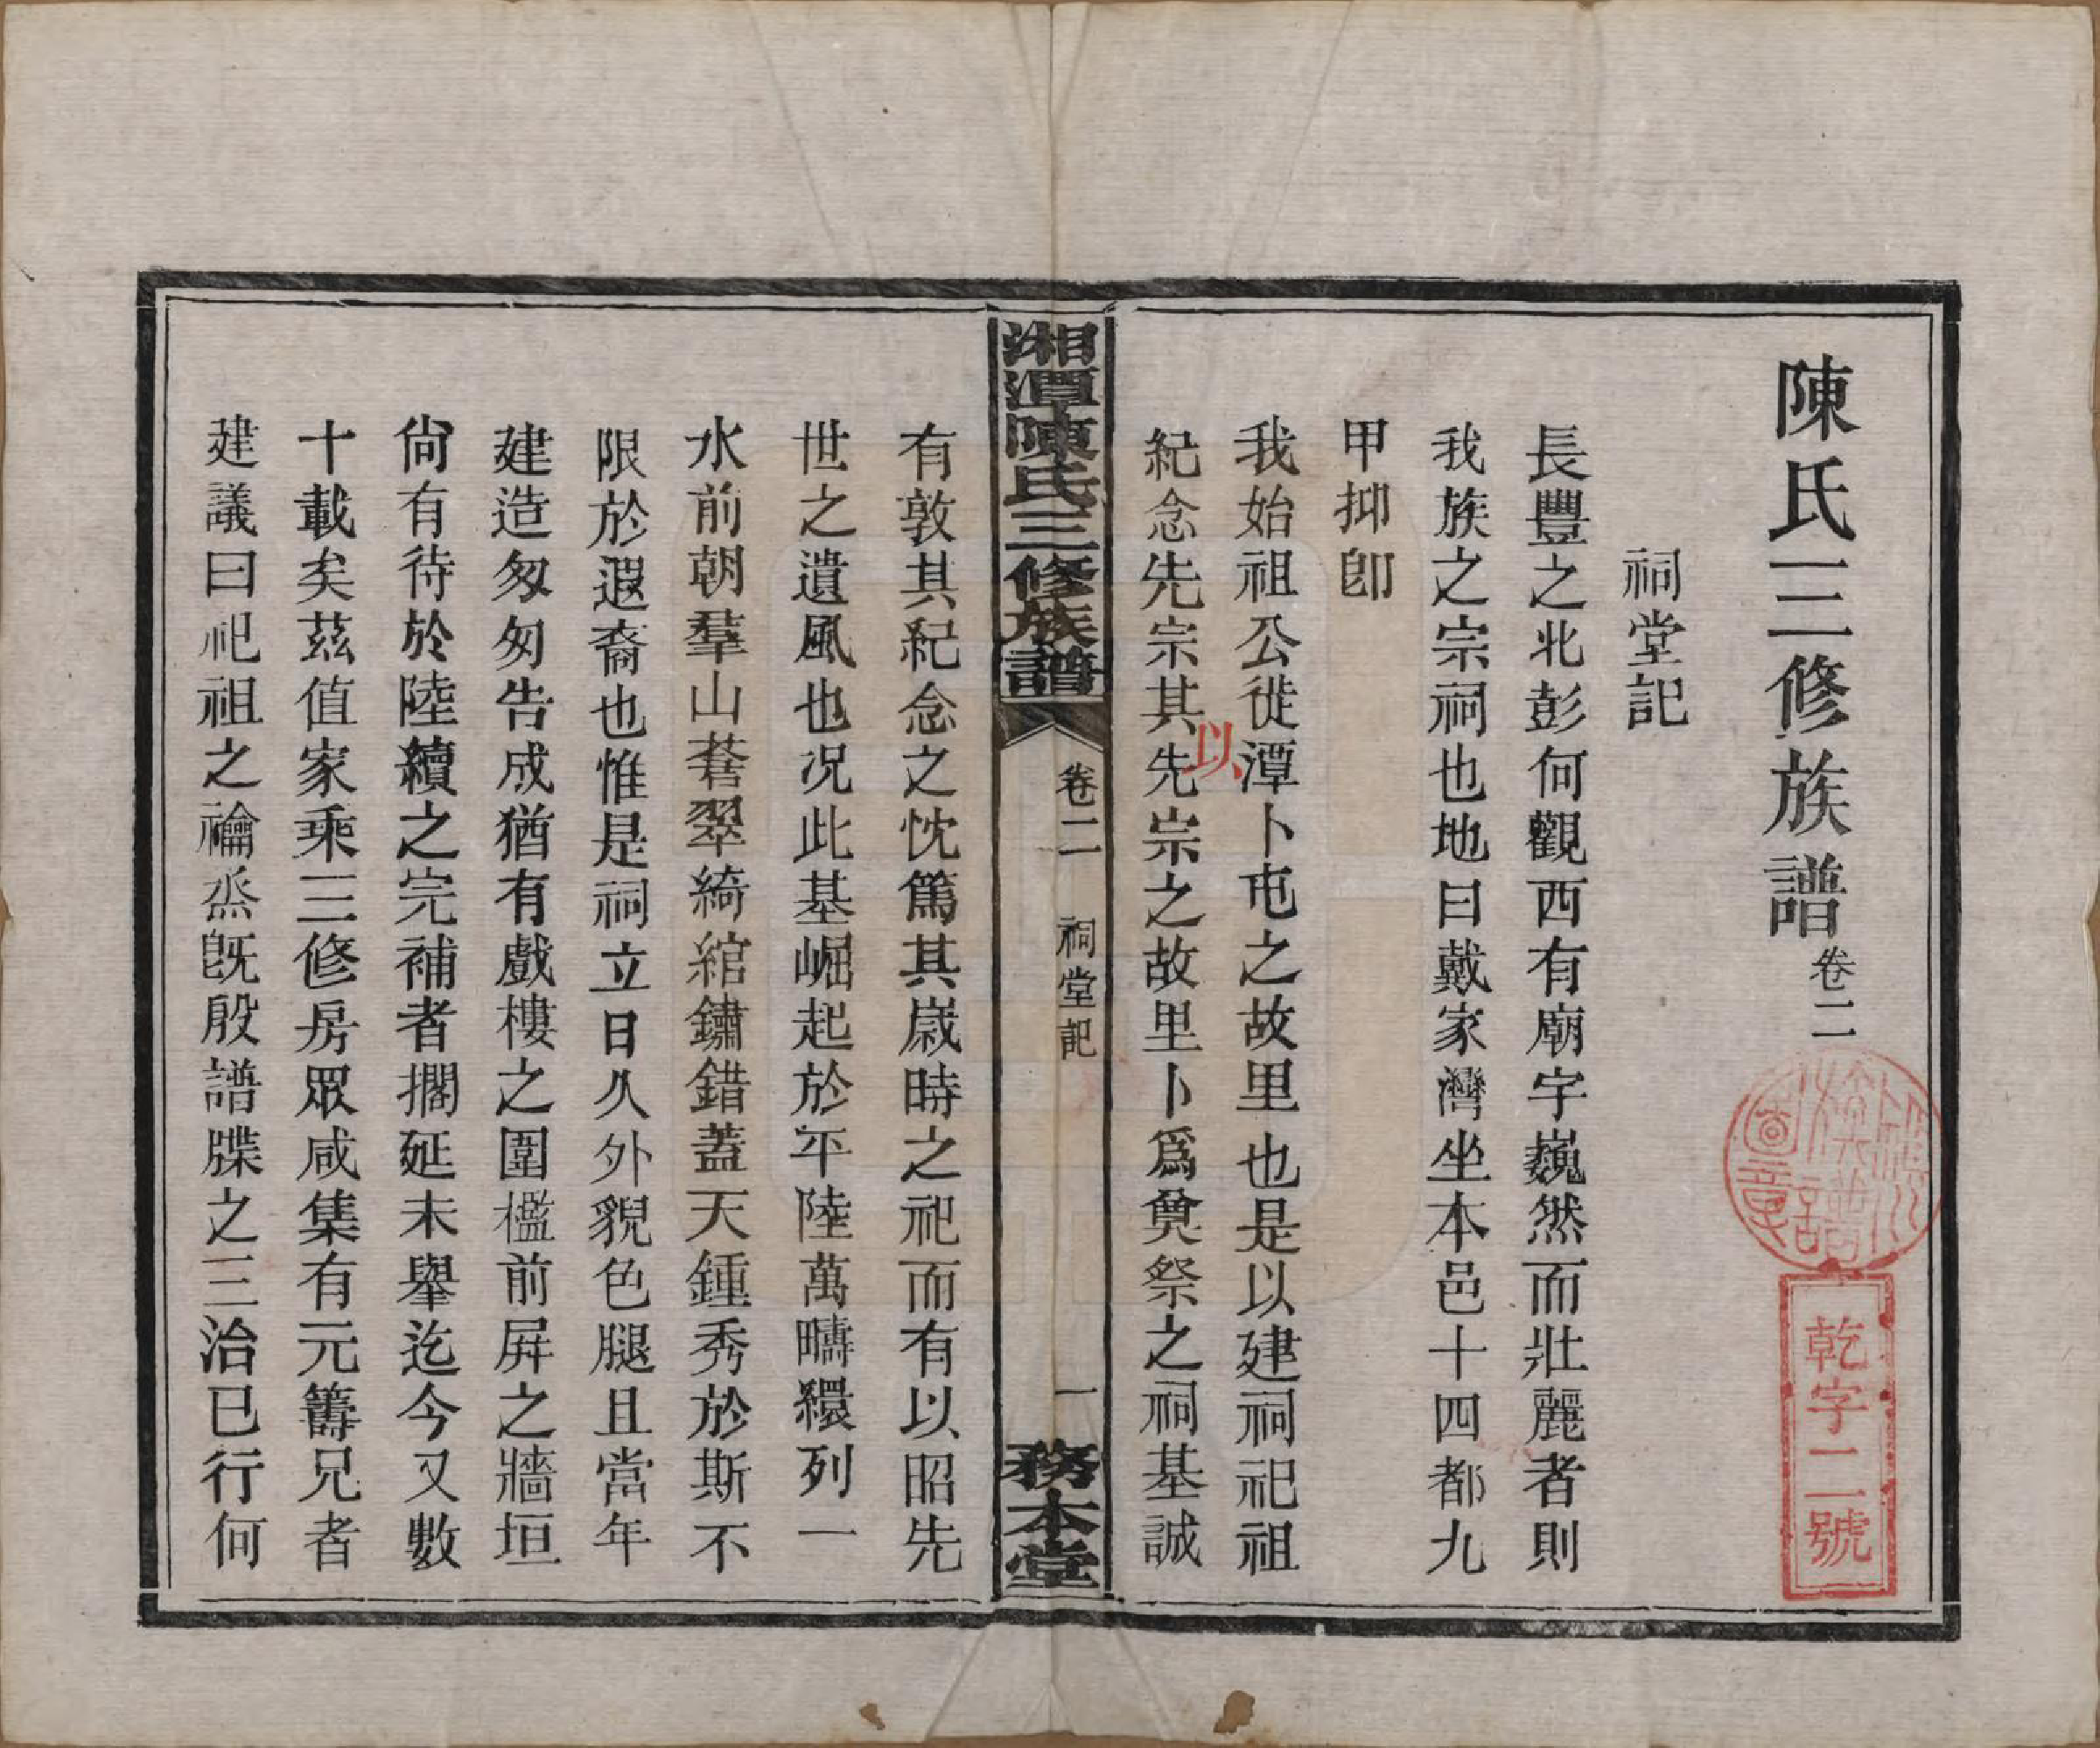 陳氏三修族譜卷二
祠堂記
長豐之北彭何觀西有廟宇巍然而壯麗者則
我族之宗祠也地曰戴家灣坐本邑十四都九
甲抑卽
我始祖公徙潭卜屯之故里也是以建祠祀祖
紀念先宗其先宗之故里卜爲奠祭之祠基誠
以
湘潭陳氏三修族譜 卷二 祠堂記 一 務本堂
有敦其紀念之忱篤其歲時之祀而有以昭先
世之遺風也况此基崛起於平陸萬疇繯列一
水前朝羣山蒼翠綺綰鏽錯蓋天鍾秀於斯不
限於遐裔也惟是祠立日久外貌色腿且當年
建造匆匆告成猶有戲樓之圍檻前屛之牆垣
尙有待於陸續之完補者擱延未舉迄今又數
十載矣茲值家乘三修房眾咸集有元籌兄者
建議曰祀祖之禴烝旣殷譜牒之三治已行何
族譜圖章
乾字二號